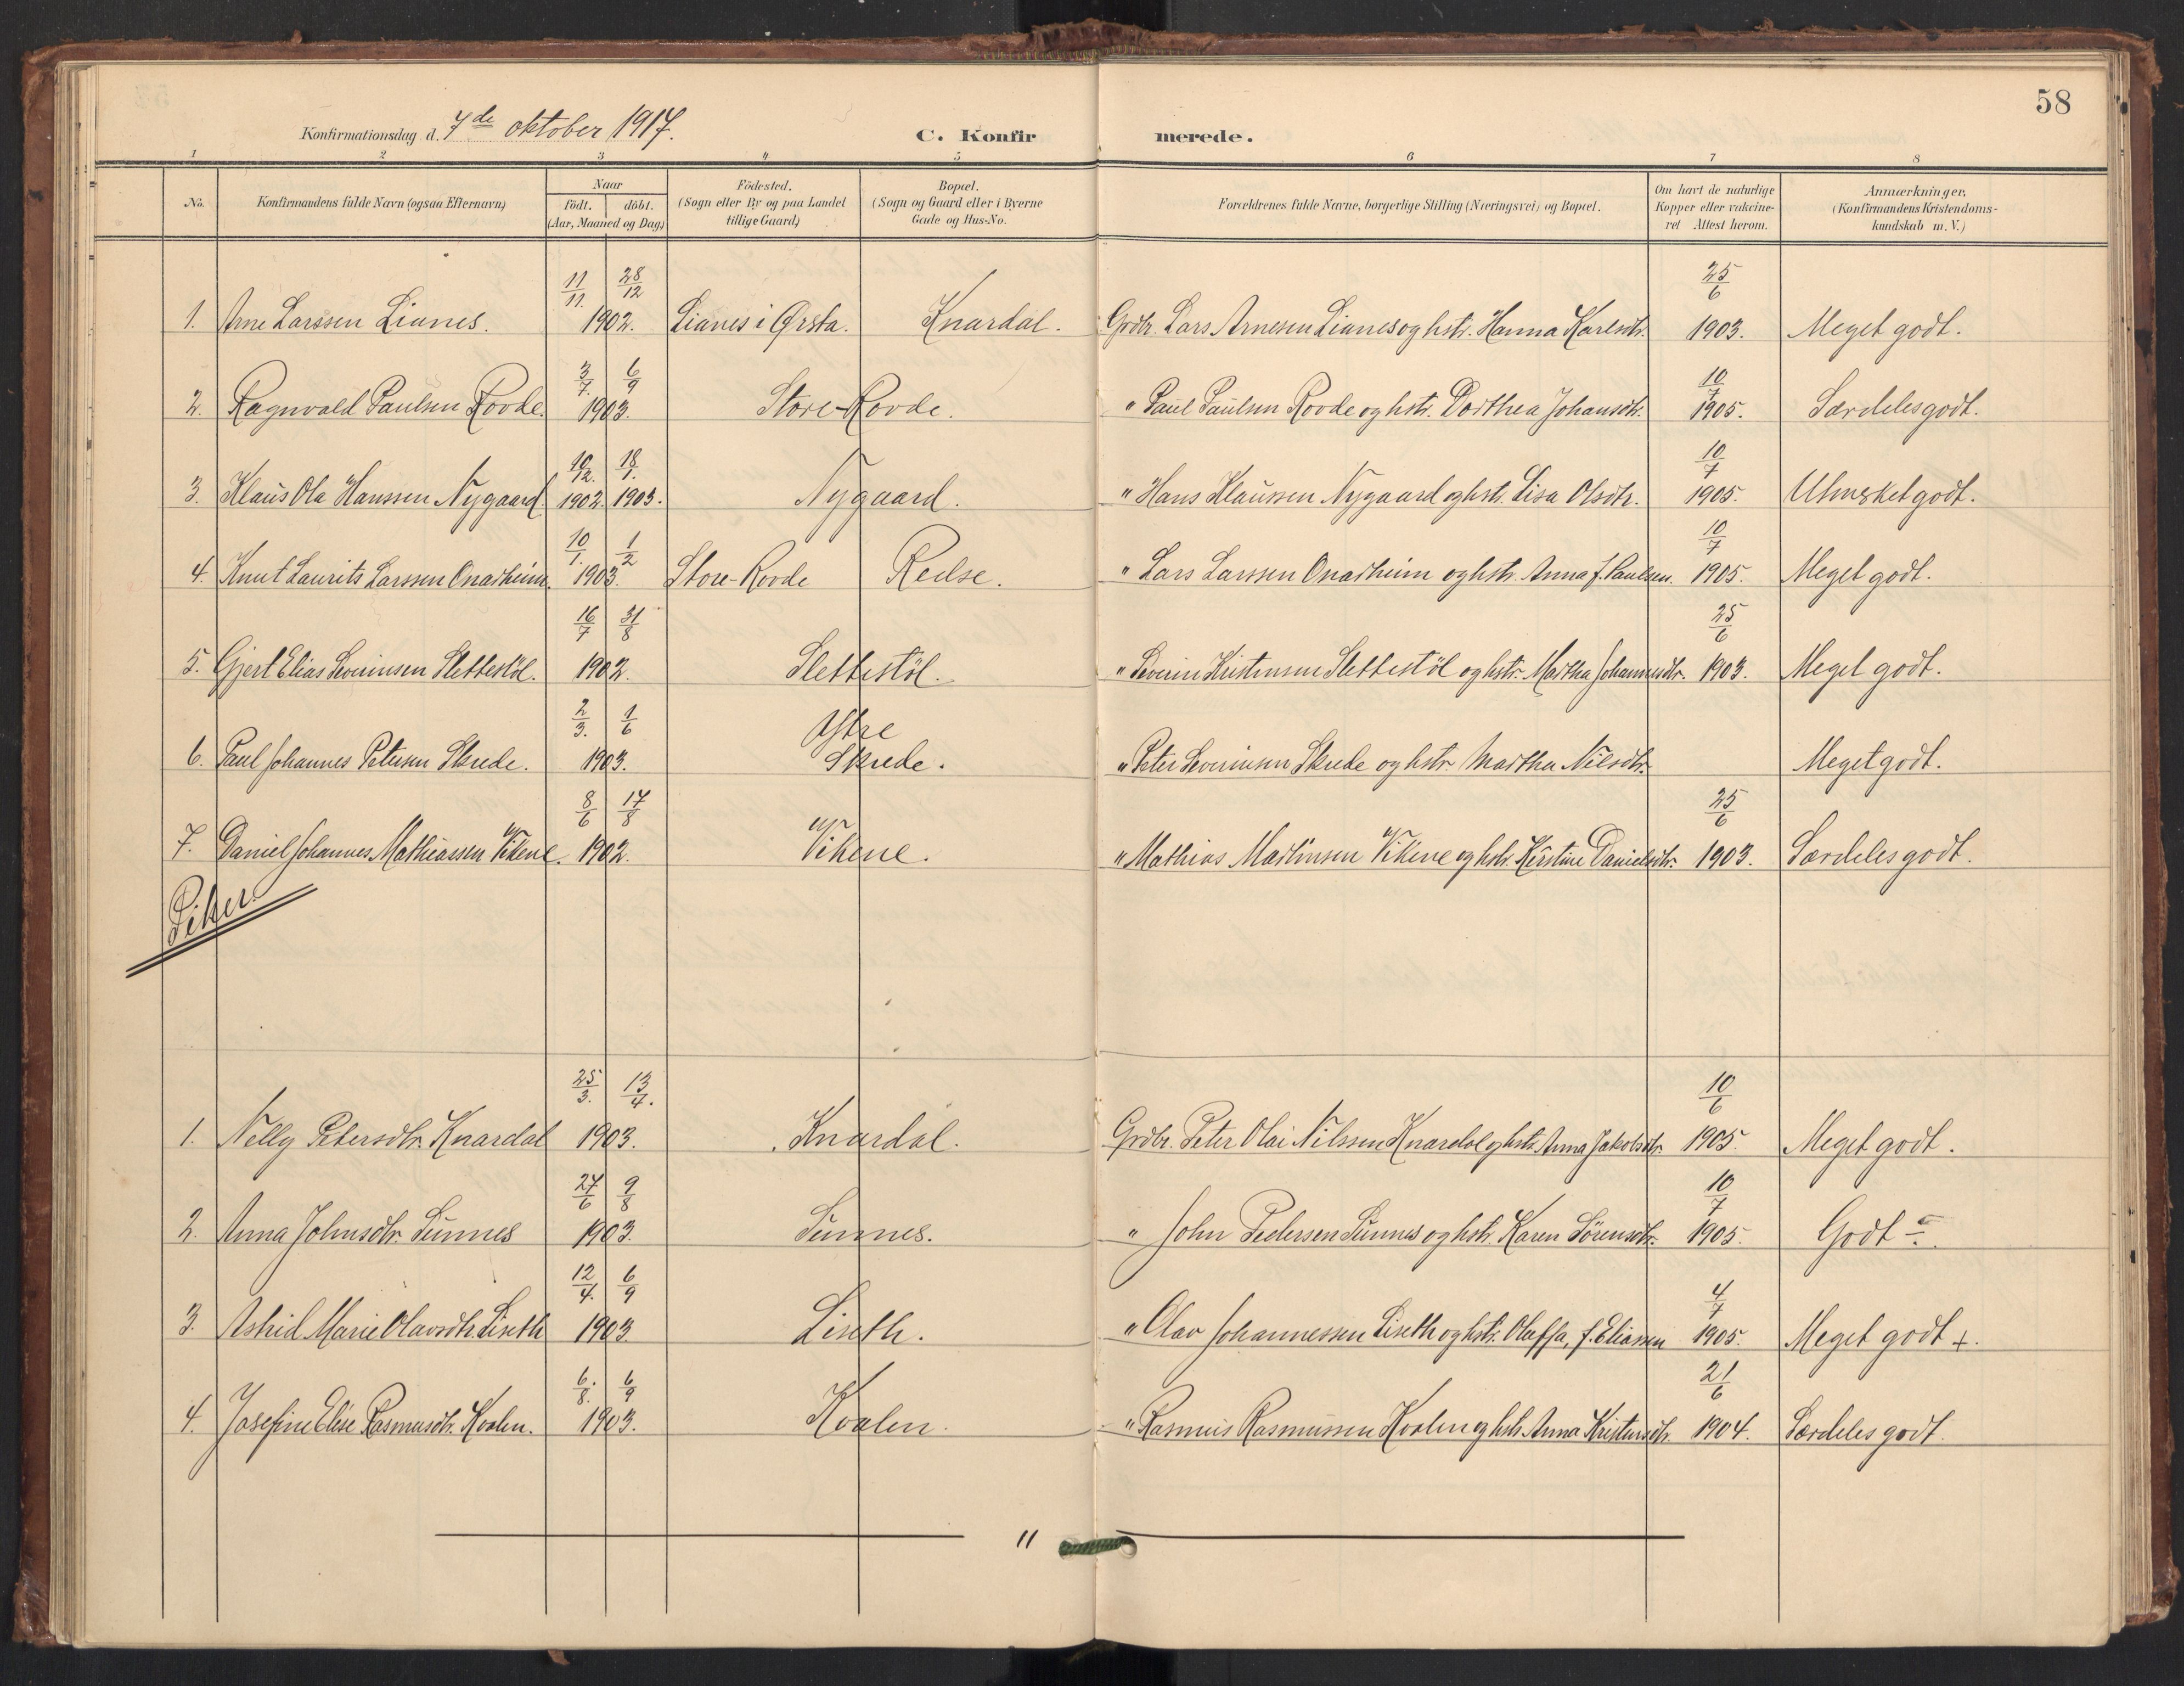 58
Konfirmationsdag d. 7de oktober 1917.
C. Konfirmerede.
1 2 3 4 5 6 7 8
No. Konfirmandens fulde Navn (ogsaa Efternavn) Naar Födt. döbt. (Aar, Maaned og Dag) Födested. (Sogn eller By og paa Landet tillige Gaard) Bopæl. (Sogn og Gaard eller i Byerne Gade og Hus-No. Forældrenes fulde Navne, borgerlige Stilling (Næringsvei) og Bopæl. Om havt de naturlige Kopper eller vakcineret Attest herom. Anmærkninger, (Konfirmandens Kristendomskundskab m. V.)
1. Arne Larssen Lianes. 11/11. 28/12 1902. Lianes i Ørsta. Knardal. Grdbr. Lars Arnesen Lianes og hstr. Hanna Karlsdtr. 25/6 1903. Meget godt.
2. Ragnvald Paulsen Rovde. 3/7 6/9 1903. Store-Rovde. " Paul Paulsen Rovde og hstr. Dorthea Johansdtr. 10/7 1905. Særdeles godt.
3. Klaus Ola Hanssen Nygaard. 10/12. 1902. 18/1. 1903. Nygaard. " Hans Klaussen Nygaard og hstr. Lisa Olsdtr. 10/7 1905. Utmerket godt.
4. Knut Laurits Larssen Onarheim. 10/1. 1/2 1903. Store-Rovde Reilse. " Lars Larssen Onarheim og hstr. Anna f. Paulsen. 10/7 1905. Meget godt.
5. Gjert Elias Severinsen Slettestöl. 16/7 31/8 1902. Slettestöl. " Severin Kristensen Slettestöl og hstr. Martha Johannesdtr. 25/6 1903. Meget godt.
6. Paul Johannes Petersen Skrede. 2/3. 1/6 1903. Ytre Skrede. " Peter Severinsen Skrede og hstr. Martha Nilsdtr. Meget godt.
7. Daniel Johannes Mathiassen Vikene. 8/6 17/8 1902. Vikene. " Mathias Martinsen Vikene og hstr. Kirstine Danielsdtr. 25/6 1903. Særdeles godt.
Piker.
1. Nelly Petersdtr. Knardal 25/3. 13/4. 1903. Knardal. Grdbr. Peter Olai Nilssen Knardal og hstr. Anna Jakobsdtr. 10/6 1905. Meget godt.
2. Anna Johnsdtr. Sunnes 27/6 9/8 1903. Sunnes. " John Pedersen Sunnes og hstr. Karen Sørensdtr. 10/7 1905. Godt
3. Astrid Marie Olavsdtr. Liseth 12/4. 6/9 1903 Liseth. " Olav Johannessen Liseth og hstr. Olaffa, f. Eliassen 4/7 1905. Meget godt +.
4. Josefine Elise Rasmusdtr. Koalen. 6/8. 6/9 1903. Koalen. " Rasmus Rasmussen Koalen og hstr. Anna Kristensdtr. 21/6 1904. Særdeles godt.
11